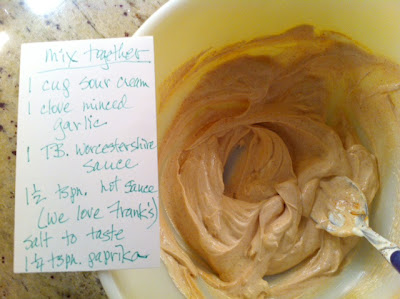 mix together
1 cup sour cream
1 clove minced
garlic
1 TB. Worcestershire
sauce
1½ tspn. hot sauce
(we love Frank's)
salt to taste
1¼ tspn. paprika